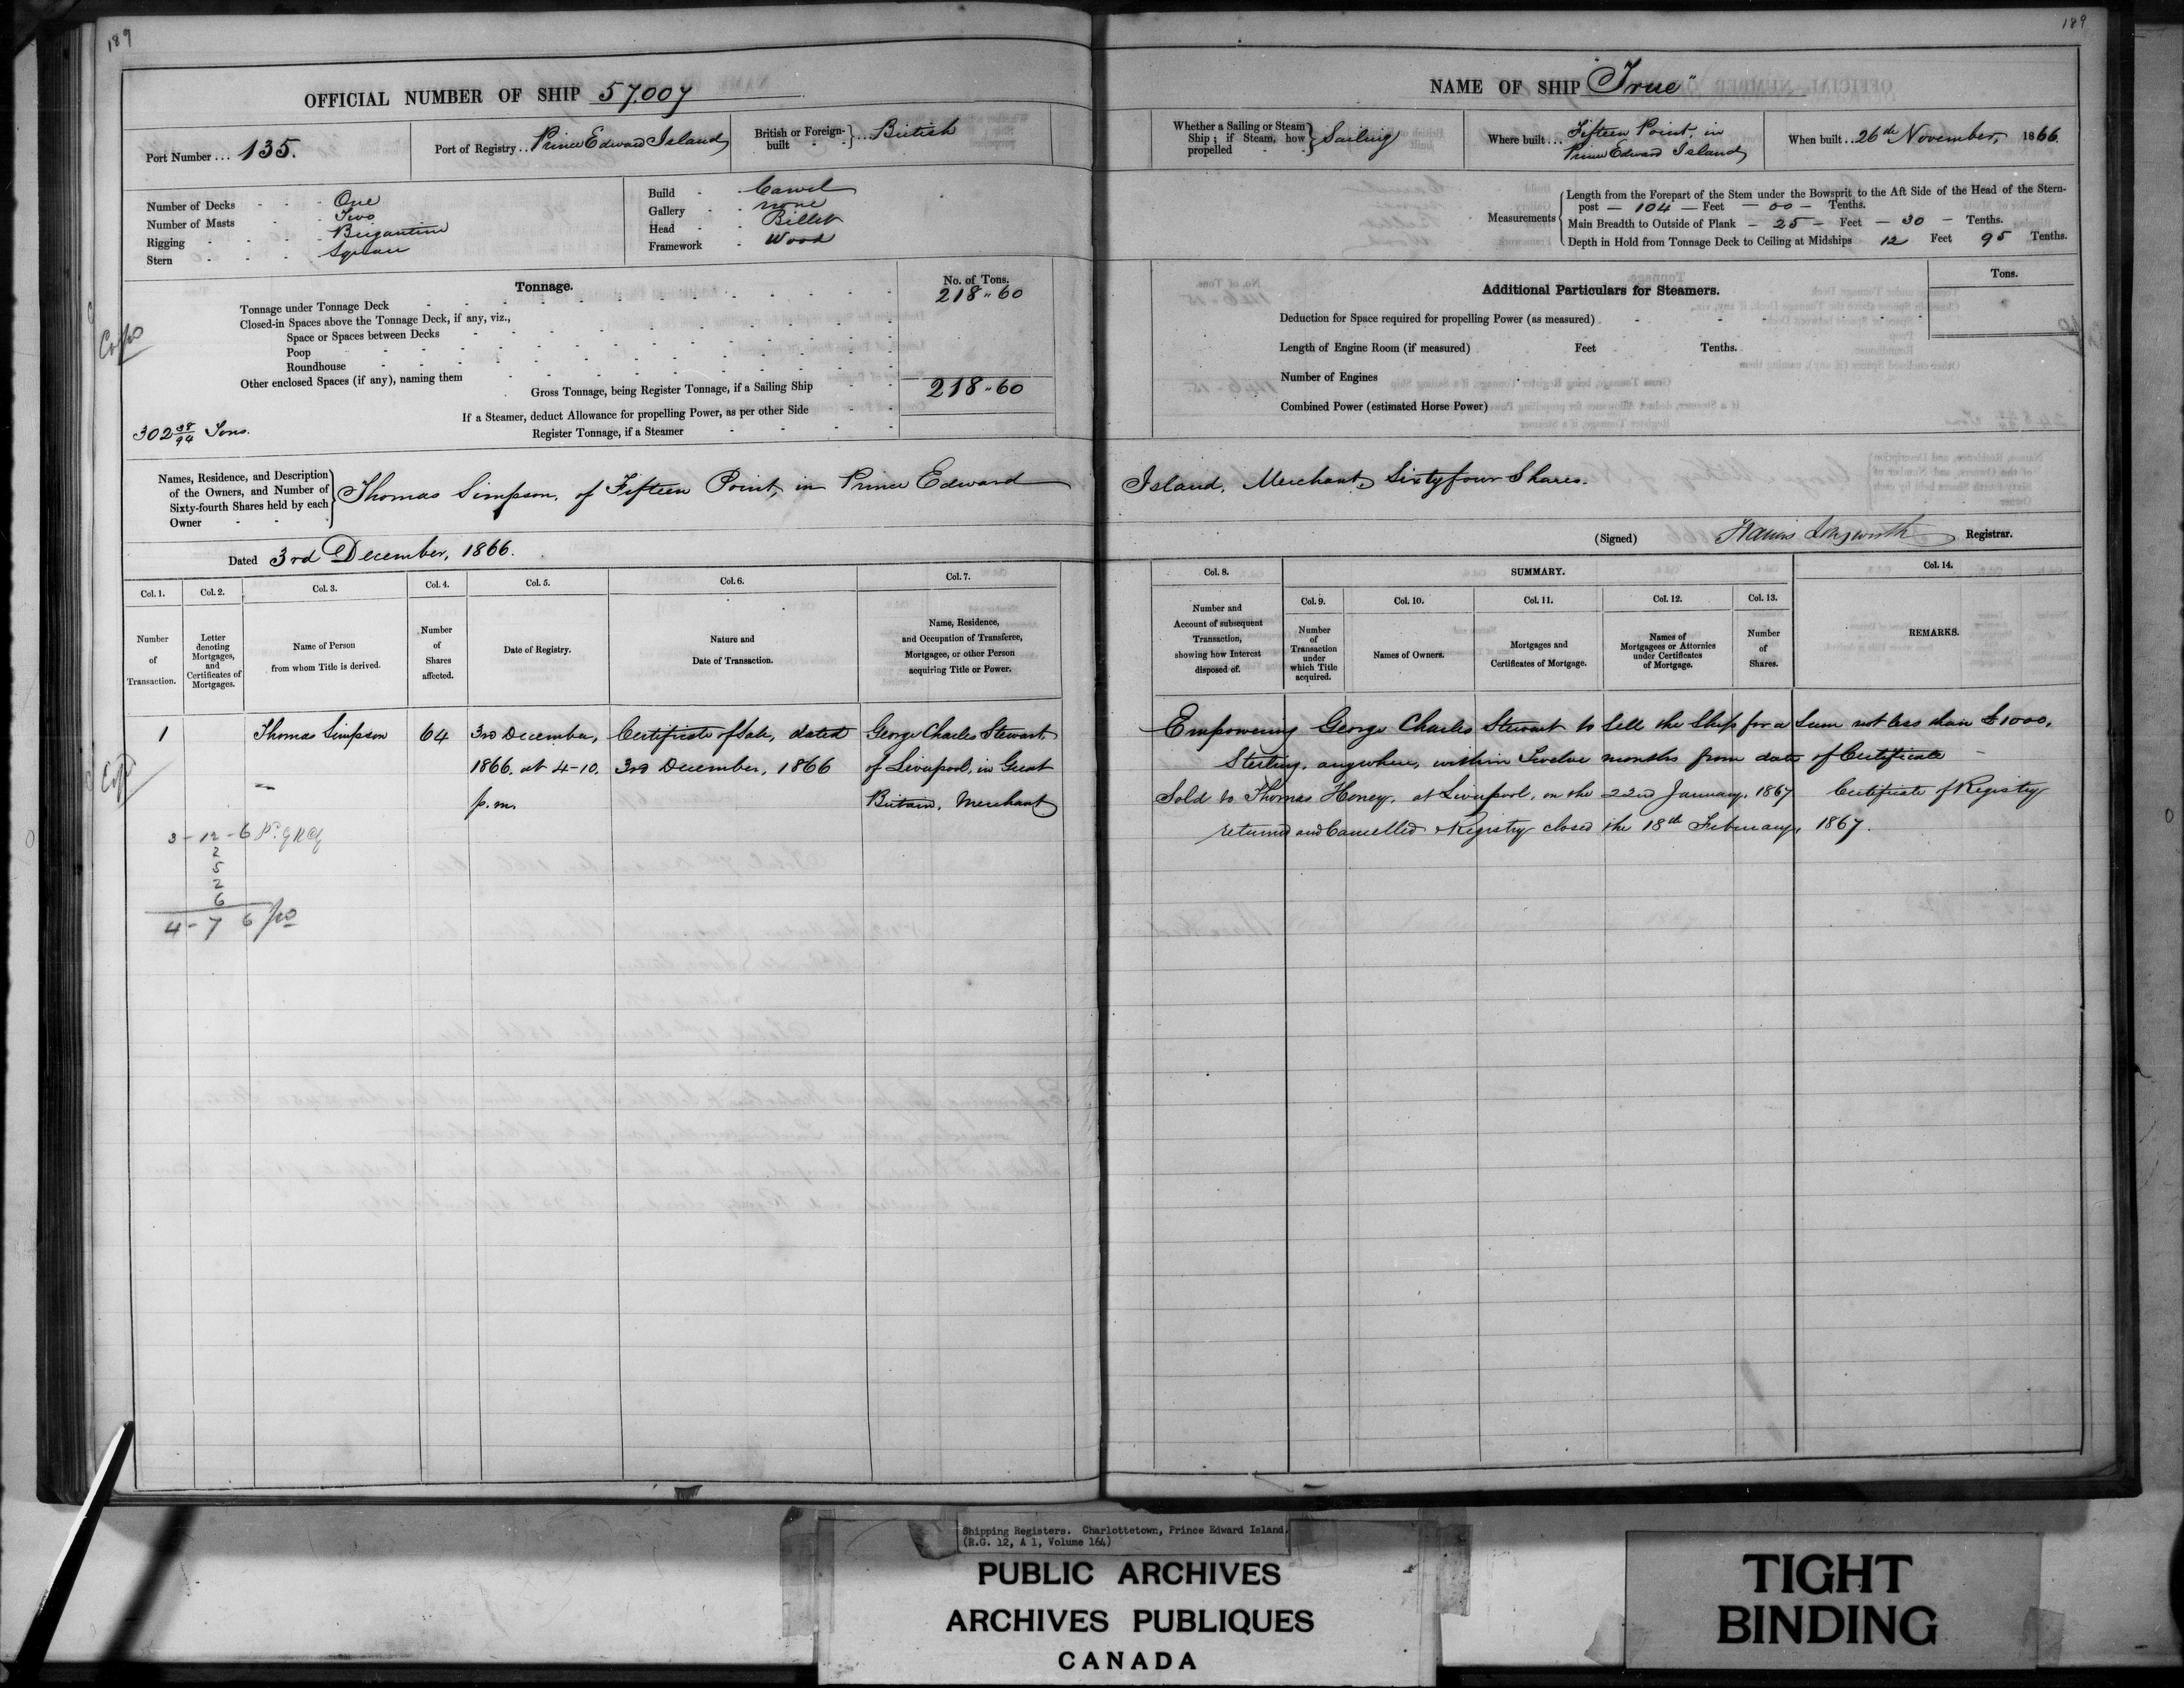 189
OFFICIAL NUMBER OF SHIP 57.007
Port Number ... 135.
Port of Registry .. Prince Edward Island
British or Foreign-built } ... British
Number of Decks - - - One
Number of Masts - - Two
Rigging - - - - Brigantine
Stern - - - - Square
Build - Carvel
Gallery - none
Head - - Billet
Framework - Wood
Tonnage.
No. of Tons.
Tonnage under Tonnage Deck 218 " 60
Closed-in Spaces above the Tonnage Deck, if any, viz.,
Space or Spaces between Decks
Poop
Roundhouse
Other enclosed Spaces (if any), naming them
Gross Tonnage, being Register Tonnage, if a Sailing Ship 218 " 60
If a Steamer, deduct Allowance for propelling Power, as per other Side
Register Tonnage, if a Steamer
302 38/94 Tons.
Copd
Names, Residence, and Description of the Owners, and Number of Sixty-fourth Shares held by each Owner - - } Thomas Simpson, of Fifteen Point, in Prince Edward
Dated 3rd December, 1866.
Col. 1. Number of Transaction.
Col. 2. Letter denoting Mortgages, and Certificates of Mortgages.
Col. 3. Name of Person from whom Title is derived.
Col. 4. Number of Shares affected.
Col. 5. Date of Registry.
Col. 6. Nature and Date of Transaction.
Col. 7. Name, Residence, and Occupation of Transferee, Mortgagee, or other Person acquiring Title or Power.
1 Thomas Simpson 64 3rd December, Certificate of Sale, dated George Charles Stewart,
1866, at 4-10, 3rd December, 1866 of Liverpool, in Great
p.m. Britain, Merchant
3 - 12 - 6
2
5
2
6
4 - 7 6
189
NAME OF SHIP "True"
Whether a Sailing or Steam Ship; if Steam, how propelled - - } Sailing
Where built ... Fifteen Point, in
Prince Edward Island
When built .. 26th November, 1866.
Measurements { Length from the Forepart of the Stem under the Bowsprit to the Aft Side of the Head of the Stern-
post — 104 — Feet — 00 — Tenths.
Main Breadth to Outside of Plank — 25 — Feet — 30 — Tenths.
Depth in Hold from Tonnage Deck to Ceiling at Midships 12 Feet 95 Tenths.
Additional Particulars for Steamers.
Tons.
Deduction for Space required for propelling Power (as measured)
Length of Engine Room (if measured) Feet Tenths.
Number of Engines
Combined Power (estimated Horse Power)
Island, Merchant, Sixtyfour Shares.
(Signed) Francis Longworth Registrar.
SUMMARY.
Col. 8. Number and Account of subsequent Transaction, showing how Interest disposed of.
Col. 9. Number of Transaction under which Title acquired.
Col. 10. Names of Owners.
Col. 11. Mortgages and Certificates of Mortgage.
Col. 12. Names of Mortgagees or Attornies under Certificates of Mortgage.
Col. 13. Number of Shares.
Col. 14. REMARKS.
Empowering George Charles Stewart to Sell the Ship for a Sum not less than £1000,
Sterling, anywhere, within Twelve months from date of Certificate —
Sold to Thomas Honey, at Liverpool, on the 22nd January, 1867 Certificate of Registry
returned and Cancelled Registry closed the 18th February, 1867.
Shipping Registers. Charlottetown, Prince Edward Island.
(R.G. 12, A 1, Volume 164)
PUBLIC ARCHIVES
ARCHIVES PUBLIQUES
CANADA
TIGHT
BINDING